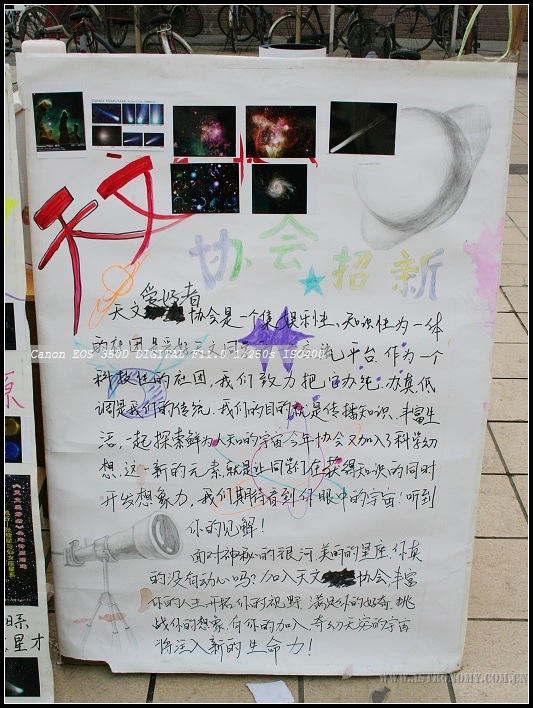 天文
协会招新
爱好者
天文协会是一个集娱乐性、知识性为一体
的社团是爱好天文同 流平台 作为一个
Canon EOS 350D DIGITAL F11.0 1/250s ISO200
科技性的社团,我们致力把 办纯、办真,低
调是我们的传统.我们的目的就是传播知识、丰富生
活,一起探索鲜为人知的宇宙今年协会又加入了科学幻
想,这一新的元素,就是让同学们在获得知识的同时
开发想象力,我们期待看到你眼中的宇宙!听到
你的见解!
面对神秘的银河,美丽的星座,你真
的没有动心吗?加入天文协会,丰富
你的人生,开拓你的视野,满足你的好奇,挑
战你的想象,有你的加入,奇幻天容的宇宙
将注入新的生命力!
WWW.ASTRONOMY.COM.CN